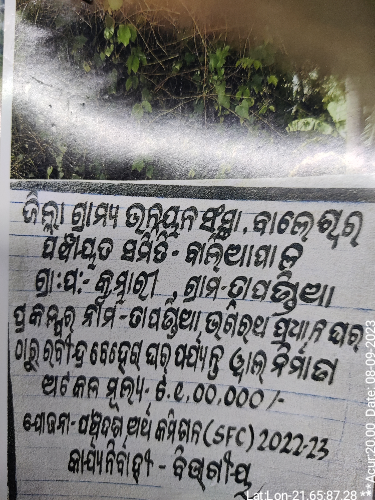 ଜିଲ୍ଲା ଗ୍ରାମ୍ୟ ଉନ୍ନୟନ ସଂସ୍ଥା, ବାଲେଶ୍ୱର
ପଞ୍ଚାୟତ ସମିତି - ବାଲିଆପାଳ
ଗ୍ରା:ପଂ:- କୁମ୍ଭାରୀ , ଗ୍ରାମ-ଡାପଣ୍ଡିଆ
ପ୍ରକଳ୍ପର ନାମ - ଡାପଣ୍ଡିଆ ଭଗିରଥ ପ୍ରଧାନ ଘର
ଠାରୁ ରବୀନ୍ଦ୍ର ବେହେରା ଘର ପର୍ଯ୍ୟନ୍ତ ୱାଲ ନିର୍ମାଣ
ଅଟକଳ ମୂଲ୍ୟ:- ଟ.୧,00,000/-
ଯୋଜନା - ପଞ୍ଚଦଶ ଅର୍ଥ କମିଶନ (SFC) 2022-23
କାର୍ଯ୍ୟନିର୍ବାହୀ - ବିଭାଗୀୟ
Lat Lon-21.65:87.28
***Acur:20.00 Date: 08-09-2023